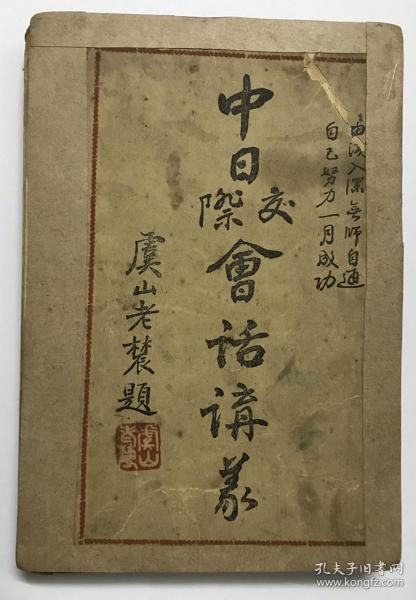 由浅入深無師自通
自己努力一月成功
中日交際會話講義
虞山老辳題
虞山老辳
孔夫子旧书网
www.kongfz.com